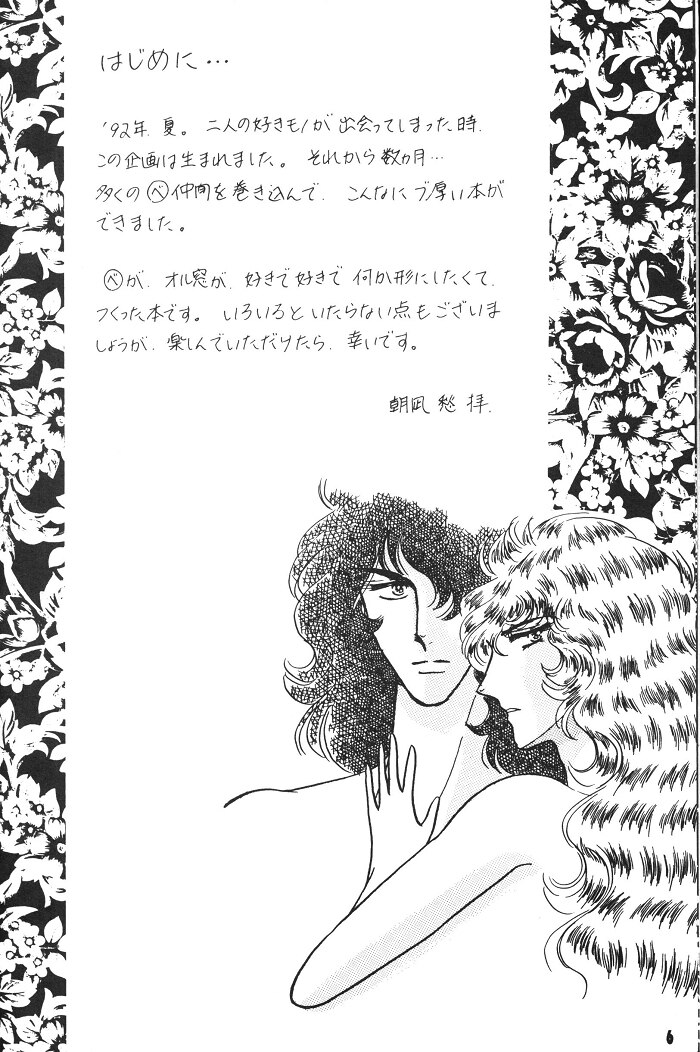 はじめに…
'92年.夏。二人の好きモノが出会ってしまった時.
この企画は生まれました。それから数ヵ月…
多くの㋬仲間を巻き込んで.こんなにブ厚い本が
できました。
㋬が.オル窓が.好きで好きで何か形にしたくて.
つくった本です。いろいろといたらない点もございま
しょうが.楽しんでいただけたら.幸いです。
朝凪 愁 拝.
6